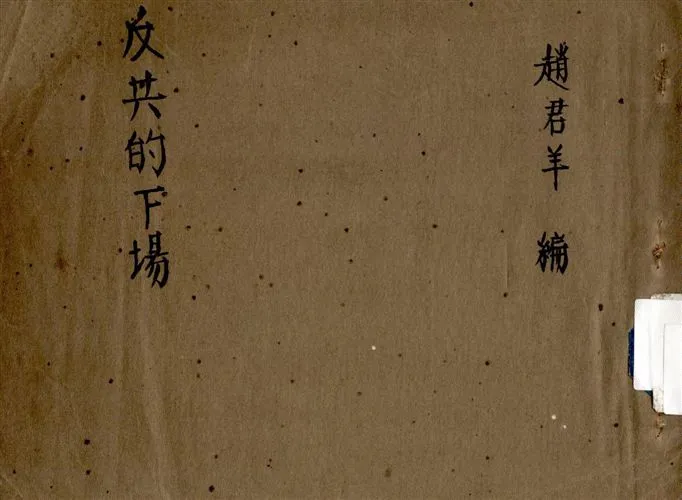 趙君羊 編
反共的下場